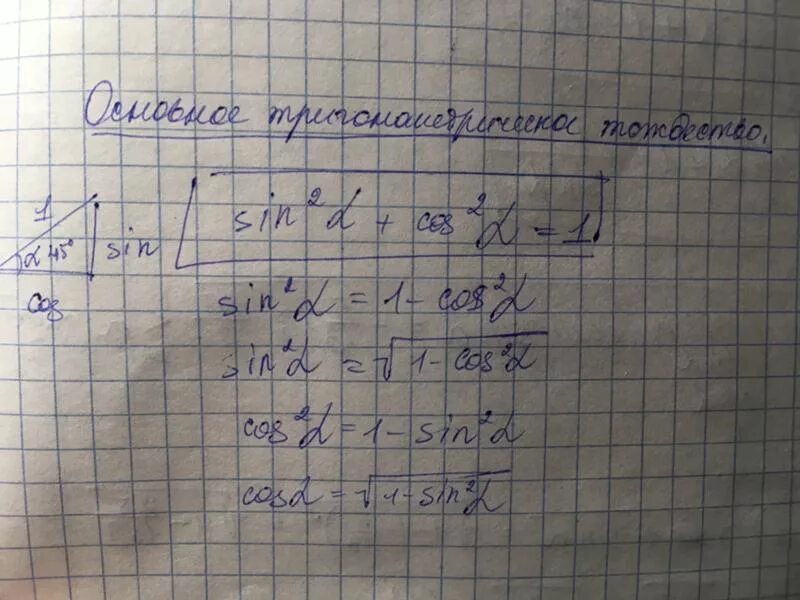 Основное тригонометрическое тождество.
1
α 45°
sin
cos
sin²α + cos²α = 1
sin²α = 1 - cos²α
sin²α = √1 - cos²α
cos²α = 1 - sin²α
cosα = √1 - sin²α